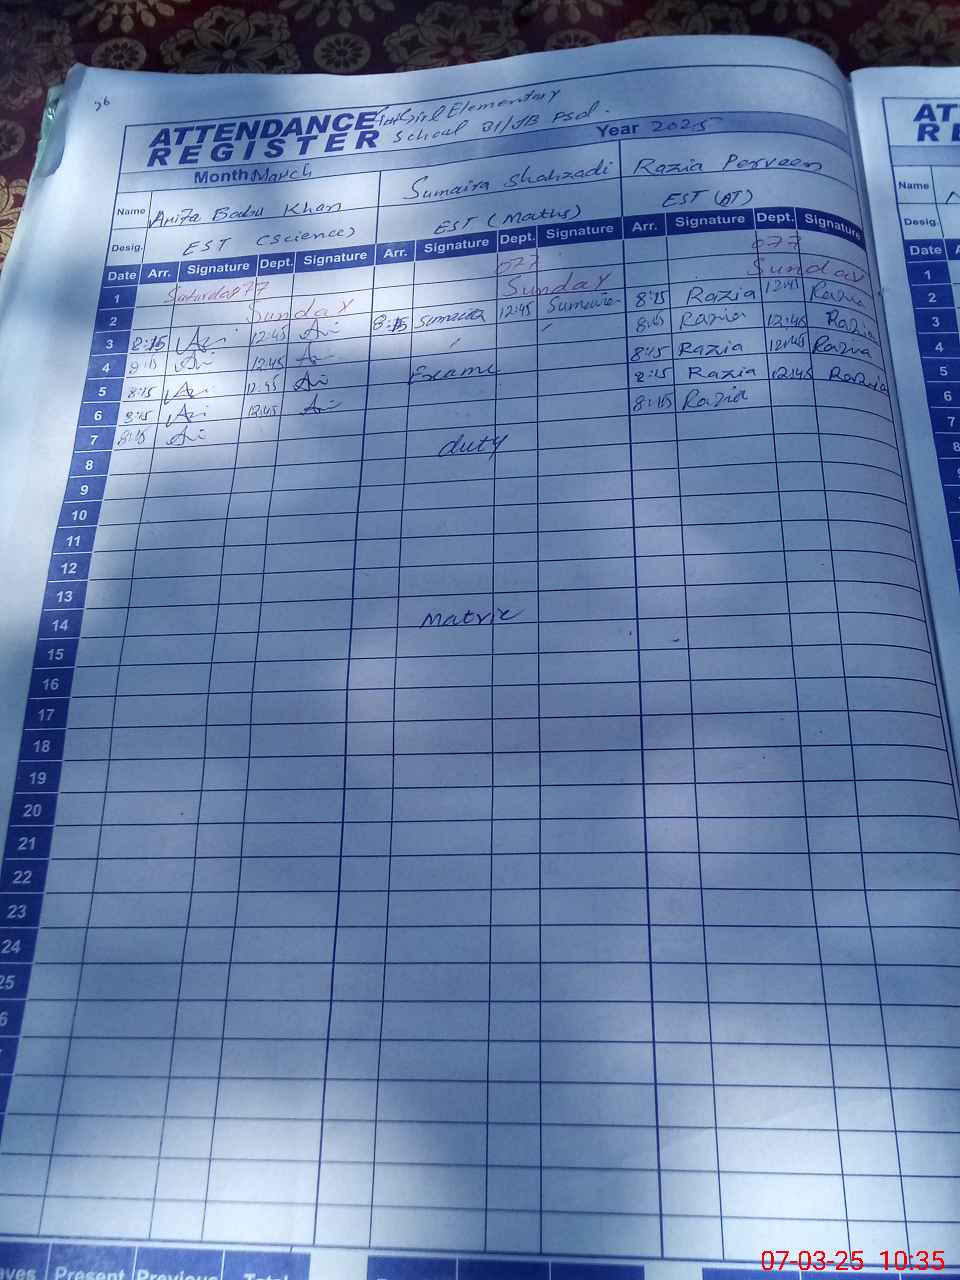 26
ATTENDANCE Girl Elementary
REGISTER School 81/JB Fsd.
Month March Year 2025
Name Anifa Babu Khan Sumaira Shahzadi Razia Perveen
Desig. EST (Science) EST (Maths) EST (AT)
Date Arr. Signature Dept. Signature Arr. Signature Dept. Signature Arr. Signature Dept. Signature
1 Saturday
2 Sunday Sunday Sunday
3 8:15 12:45 8:15 Sumaira 12:45 Sumaira 8:15 Razia 12:45 Razia
4 8:15 12:45 8:15 Razia 12:45 Razia
5 8:15 12:45 Exame 8:15 Razia 12:45 Razia
6 8:15 12:45 8:15 Razia 12:45 Razia
7 8:15 8:15 Razia
8 duty
9
10
11
12
13
14 Matric
15
16
17
18
19
20
21
22
23
24
25
6
aves Present Previous Total
AT
RE
Name
Desig.
Date A
1
2
3
4
5
6
7
8
07-03-25 10:35